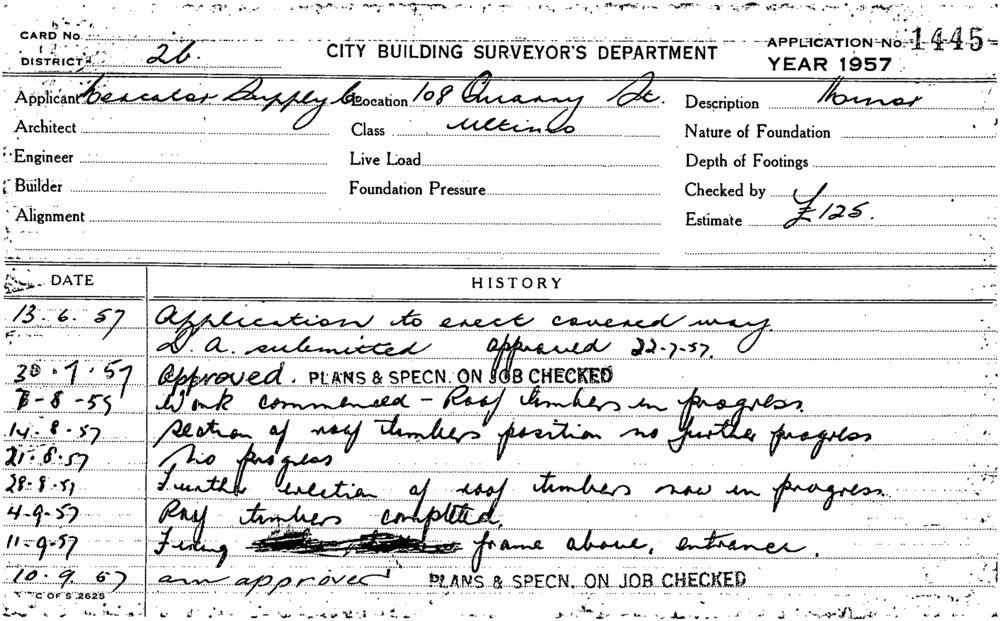 CARD No.
DISTRICT 26
CITY BUILDING SURVEYOR'S DEPARTMENT
APPLICATION No. 1445
YEAR 1957
Applicant Mercator Supply Co Location 108 Quarry St. Description Minor
Architect Class Ultimo Nature of Foundation
Engineer Live Load Depth of Footings
Builder Foundation Pressure Checked by
Alignment Estimate £125.
DATE HISTORY
13.6.57 Application to erect covered way
D.A. submitted approved 22-7-57.
30.7.57 Approved. PLANS & SPECN. ON JOB CHECKED
-8-57 Work commenced - Roof timbers in progress.
14.8.57 Section of roof timbers position no further progress
21.8.57 No progress
28.8.57 Further erection of roof timbers now in progress.
4-9-57 Roof timbers completed.
11-9-57 Fixing frame above, entrance.
10.9.57 am approved PLANS & SPECN. ON JOB CHECKED
C OF S 2625